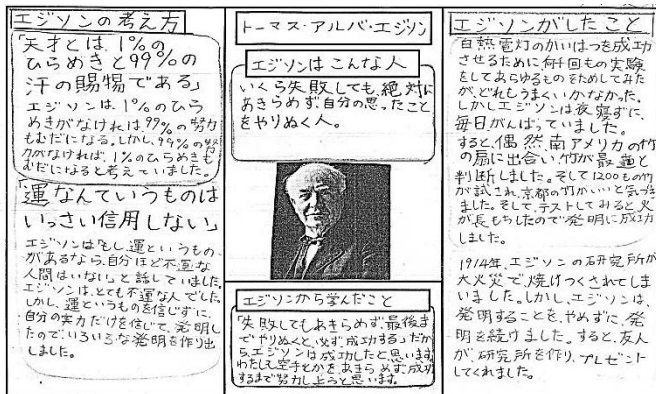 エジソンの考え方
「天才とは、1%の
ひらめきと99%の
汗の賜物である」
エジソンは、1%のひら
めきがなければ、99%の努力
もむだになる。しかし、99%の努
力がなければ、1%のひらめきも
むだになると考えていました。
「運なんていうものは
いっさい信用しない」
エジソンは「もし、運というもの
があるなら、自分ほど不運な
人間はいない。」と話していました。
エジソンは、とても不運な人でした。
しかし、運というものを信じずに、
自分の実力だけを信じて、発明し
たので、いろいろな発明を作り出
しました。
トーマス・アルバ・エジソン
エジソンはこんな人
いくら失敗しても、絶対に
あきらめず、自分の思ったこと
をやりぬく人。
エジソンから学んだこと
「失敗してもあきらめず、最後ま
でやりぬくと、必ず成功する」だか
ら、エジソンは成功したと思います。
わたしも空手とかを、あきらめず、成功
するまで努力しようと思います。
エジソンがしたこと
白熱電灯のかいはつを成功
させるために何千回もの実験
をしてあらゆるものをためしてみた
が、どれもうまくいかなかった。
しかしエジソンは夜寝ずに、
毎日がんばっていました。
すると、偶然、南アメリカの竹
の扇に出会い、竹が最適と
判断しました。そして1200もの竹
が試され、京都の竹がいいと気づき
ました。そして、テストしてみると、火
が長もちしたので発明に成功
しました。
1914年、エジソンの研究所が
大火災で、焼けつくされてしま
いました。しかし、エジソンは、
発明することを、やめずに、発
明を続けました。すると、友人
が、研究所を作り、プレゼント
してくれました。